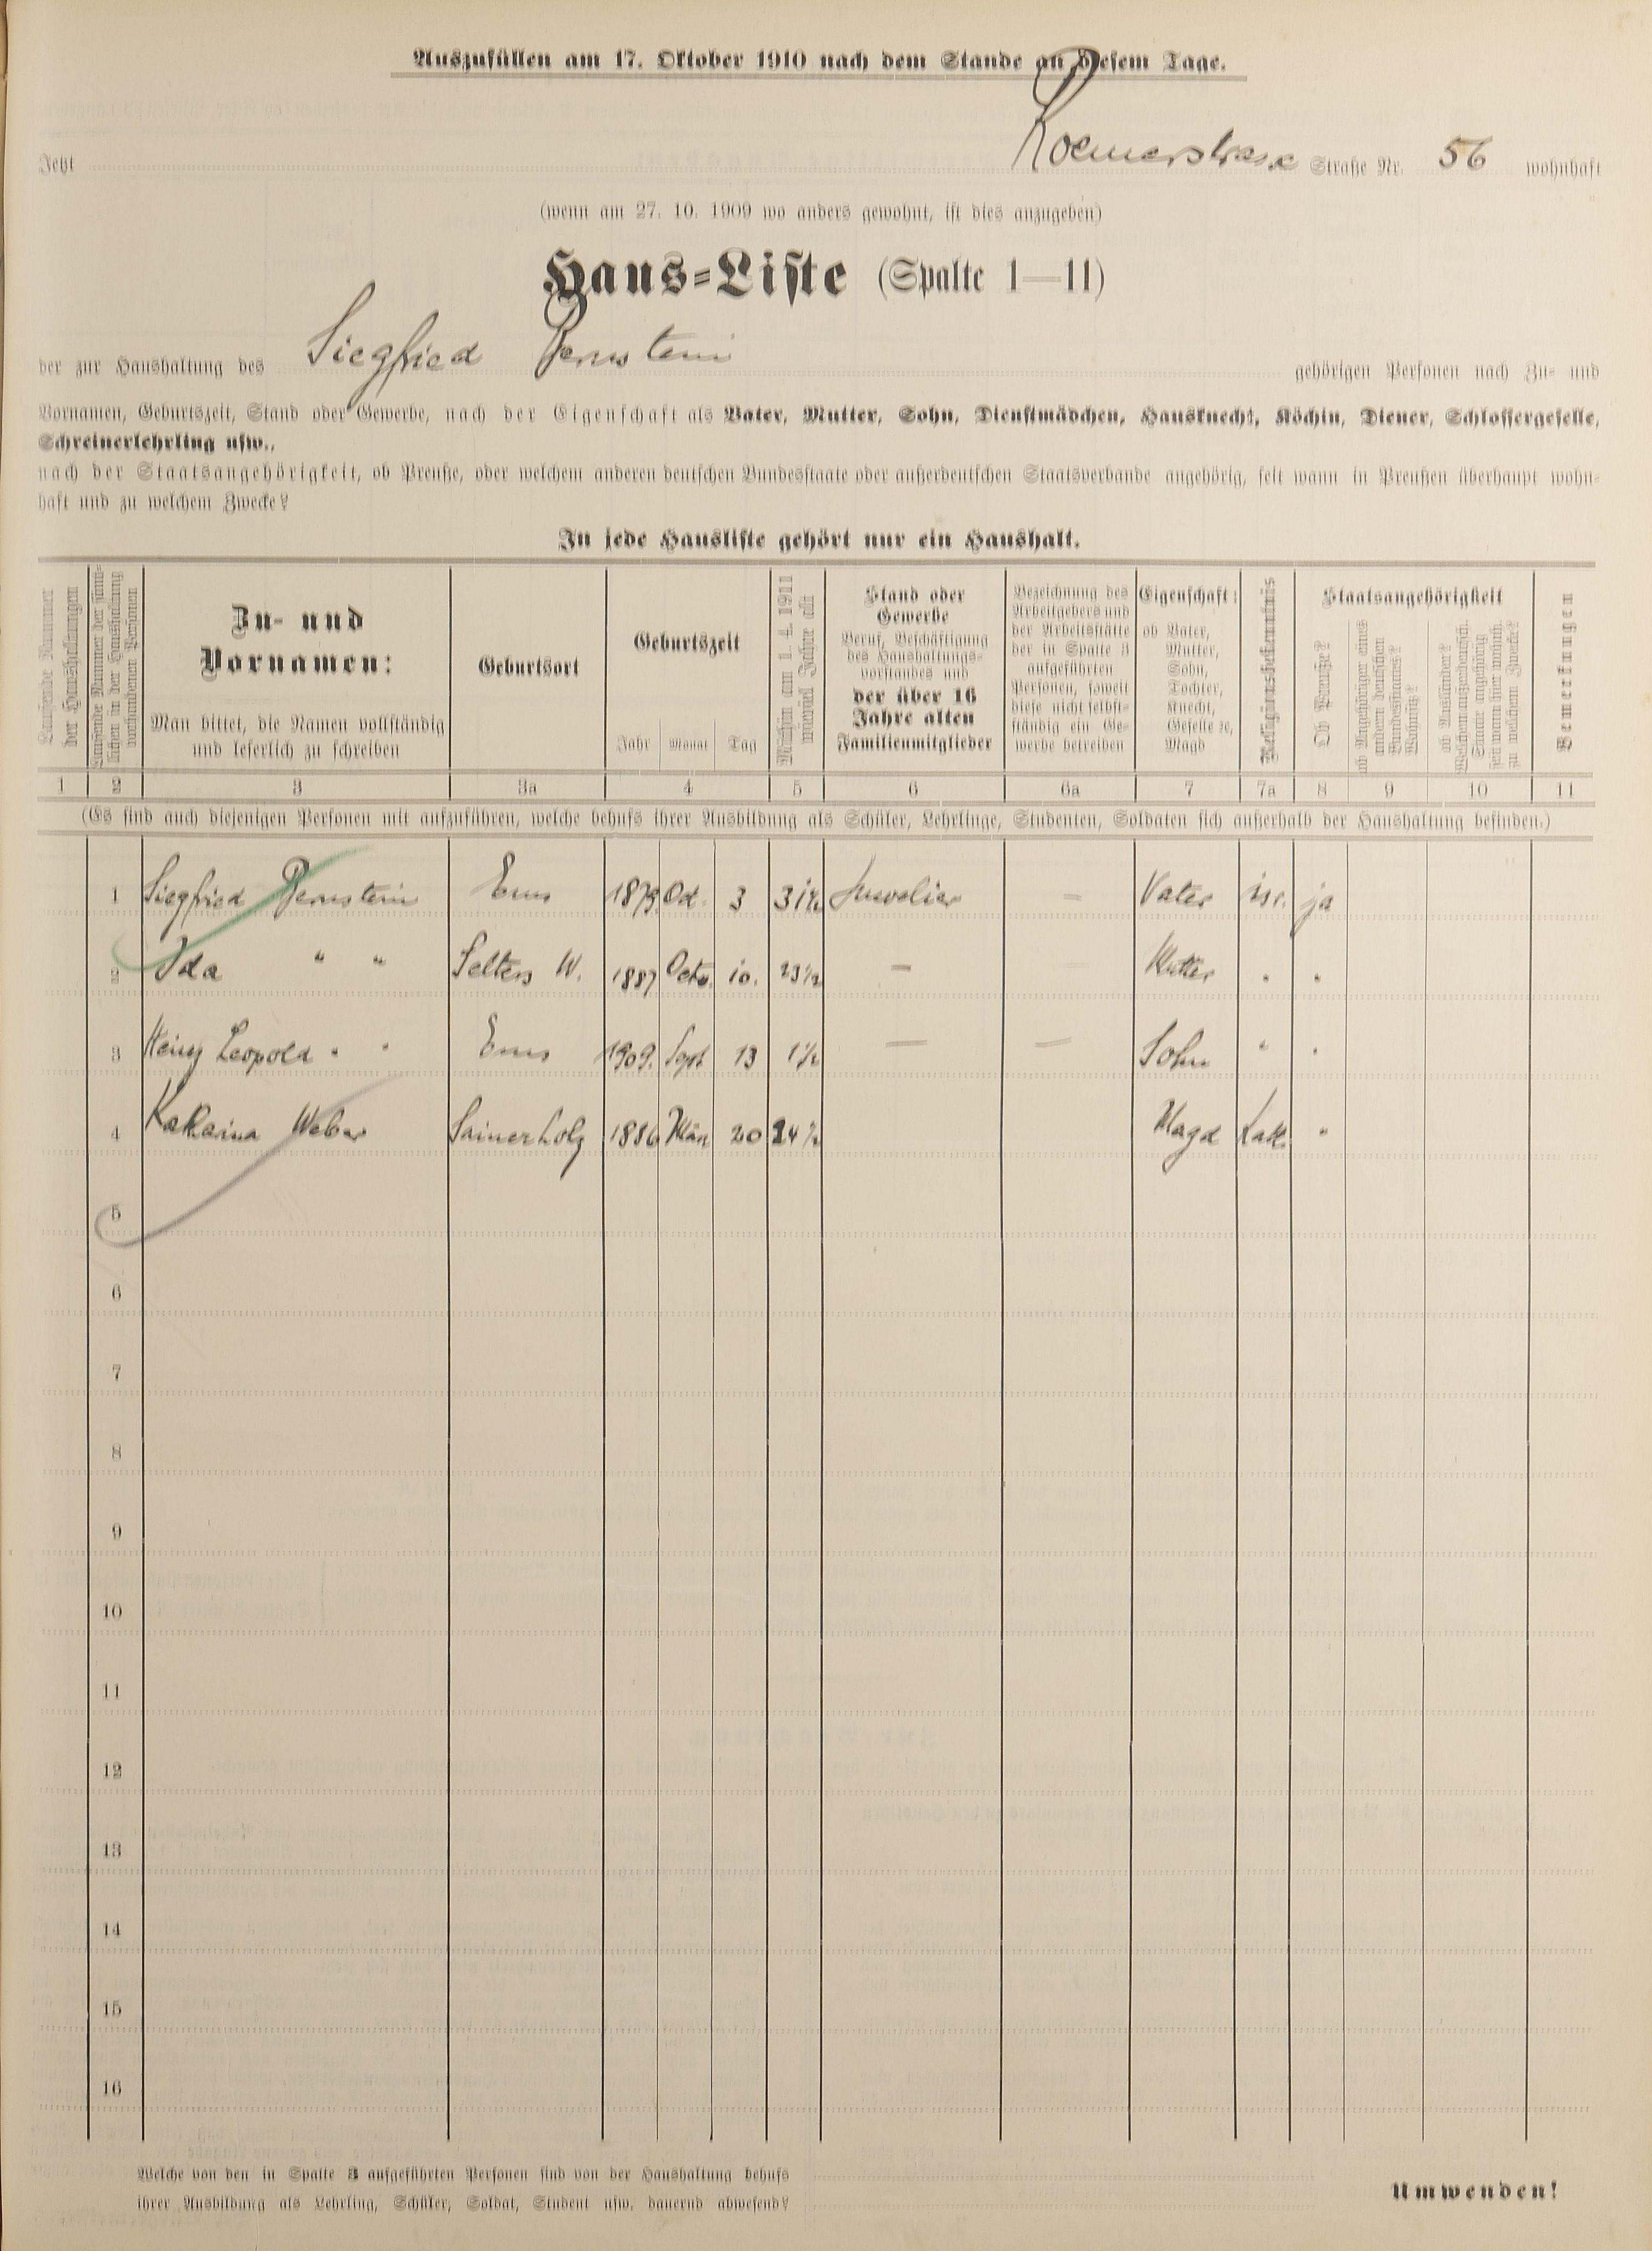 Auszufüllen am 17. Oktober 1910 nach dem Stande an diesem Tage.
Jetzt Roemerstrasse Straße Nr. 56 wohnhaft
(wenn am 27. 10. 1909 wo anders gewohnt, ist dies anzugeben)
Haus-Liste (Spalte 1—11)
der zur Haushaltung des Siegfried Bernstein gehörigen Personen nach Zu- und
Vornamen, Geburtszeit, Stand oder Gewerbe, nach der Eigenschaft als Vater, Mutter, Sohn, Dienstmädchen, Hausknecht, Köchin, Diener, Schlossergeselle,
Schreinerlehrling usw.,
nach der Staatsangehörigkeit, ob Preuße, oder welchem anderen deutschen Bundesstaate oder außerdeutschen Staatsverbande angehörig, seit wann in Preußen überhaupt wohn-
haft und zu welchem Zwecke?
In jede Hausliste gehört nur ein Haushalt.
Laufende Nummer
der Haushaltungen
Laufende Nummer der sämt-
lichen in der Haushaltung
vorhandenen Personen
Zu- und
Vornamen:
Man bittet, die Namen vollständig
und leserlich zu schreiben
Geburtsort
Geburtszeit
Jahr Monat Tag
Mithin am 1. 4. 1911
wieviel Jahre alt
Stand oder
Gewerbe
Beruf, Beschäftigung
des Haushaltungs-
vorstandes und
der über 16
Jahre alten
Familienmitglieder
Bezeichnung des
Arbeitgebers und
der Arbeitsstätte
der in Spalte 3
aufgeführten
Personen, soweit
diese nicht selbst-
ständig ein Ge-
werbe betreiben
Eigenschaft:
ob Vater,
Mutter,
Sohn,
Tochter,
Knecht,
Geselle ec,
Magd
Religionsbekenntnis
Staatsangehörigkeit
Ob Preuße?
ob Angehöriger eines
andern deutschen
Bundesstaates?
Welches?
ob Ausländer?
Welchem außerdeutsch.
Staate angehörig
seit wann hier wohnh.
zu welchem Zwecke?
Bemerkungen
1 2 3 3a 4 5 6 6a 7 7a 8 9 10 11
(Es sind auch diejenigen Personen mit aufzuführen, welche behufs ihrer Ausbildung als Schüler, Lehrlinge, Studenten, Soldaten sich außerhalb der Haushaltung befinden.)
1 Siegfried Bernstein Ems 1879 Oct. 3 31½ Juwelier — Vater isr. ja
2 Ida " " Selters W. 1887 Octo. 10. 23½ — Mutter " "
3 Heinz Leopold " " Ems 1909. Sept 13 1½ — — Sohn " "
4 Katharina Weber Sainerholz 1886 März 20 24½ Magd Kath. "
5
6
7
8
9
10
11
12
13
14
15
16
Welche von den in Spalte 3 aufgeführten Personen sind von der Haushaltung behufs
ihrer Ausbildung als Lehrling, Schüler, Soldat, Student usw. dauernd abwesend?
Umwenden!